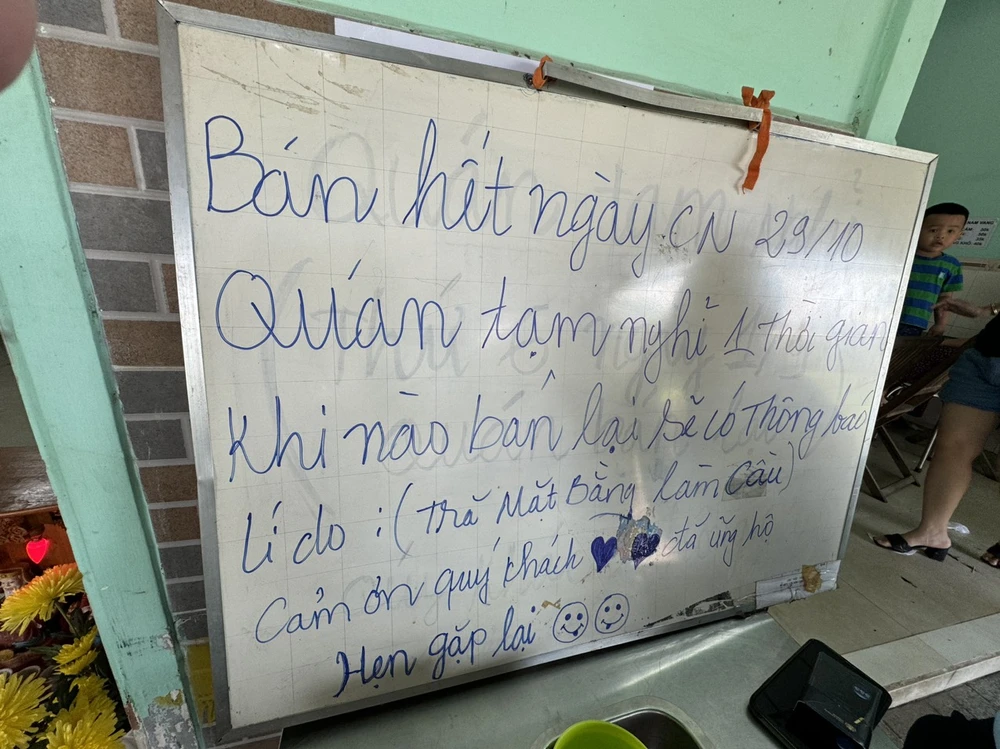 Bán hết ngày CN 29/10
Quán tạm nghỉ 1 thời gian
Khi nào bán lại sẽ có thông báo
Lí do : (Trả Mặt Bằng Làm Cầu)
Cảm ơn quý khách đã ủng hộ
Hẹn gặp lại